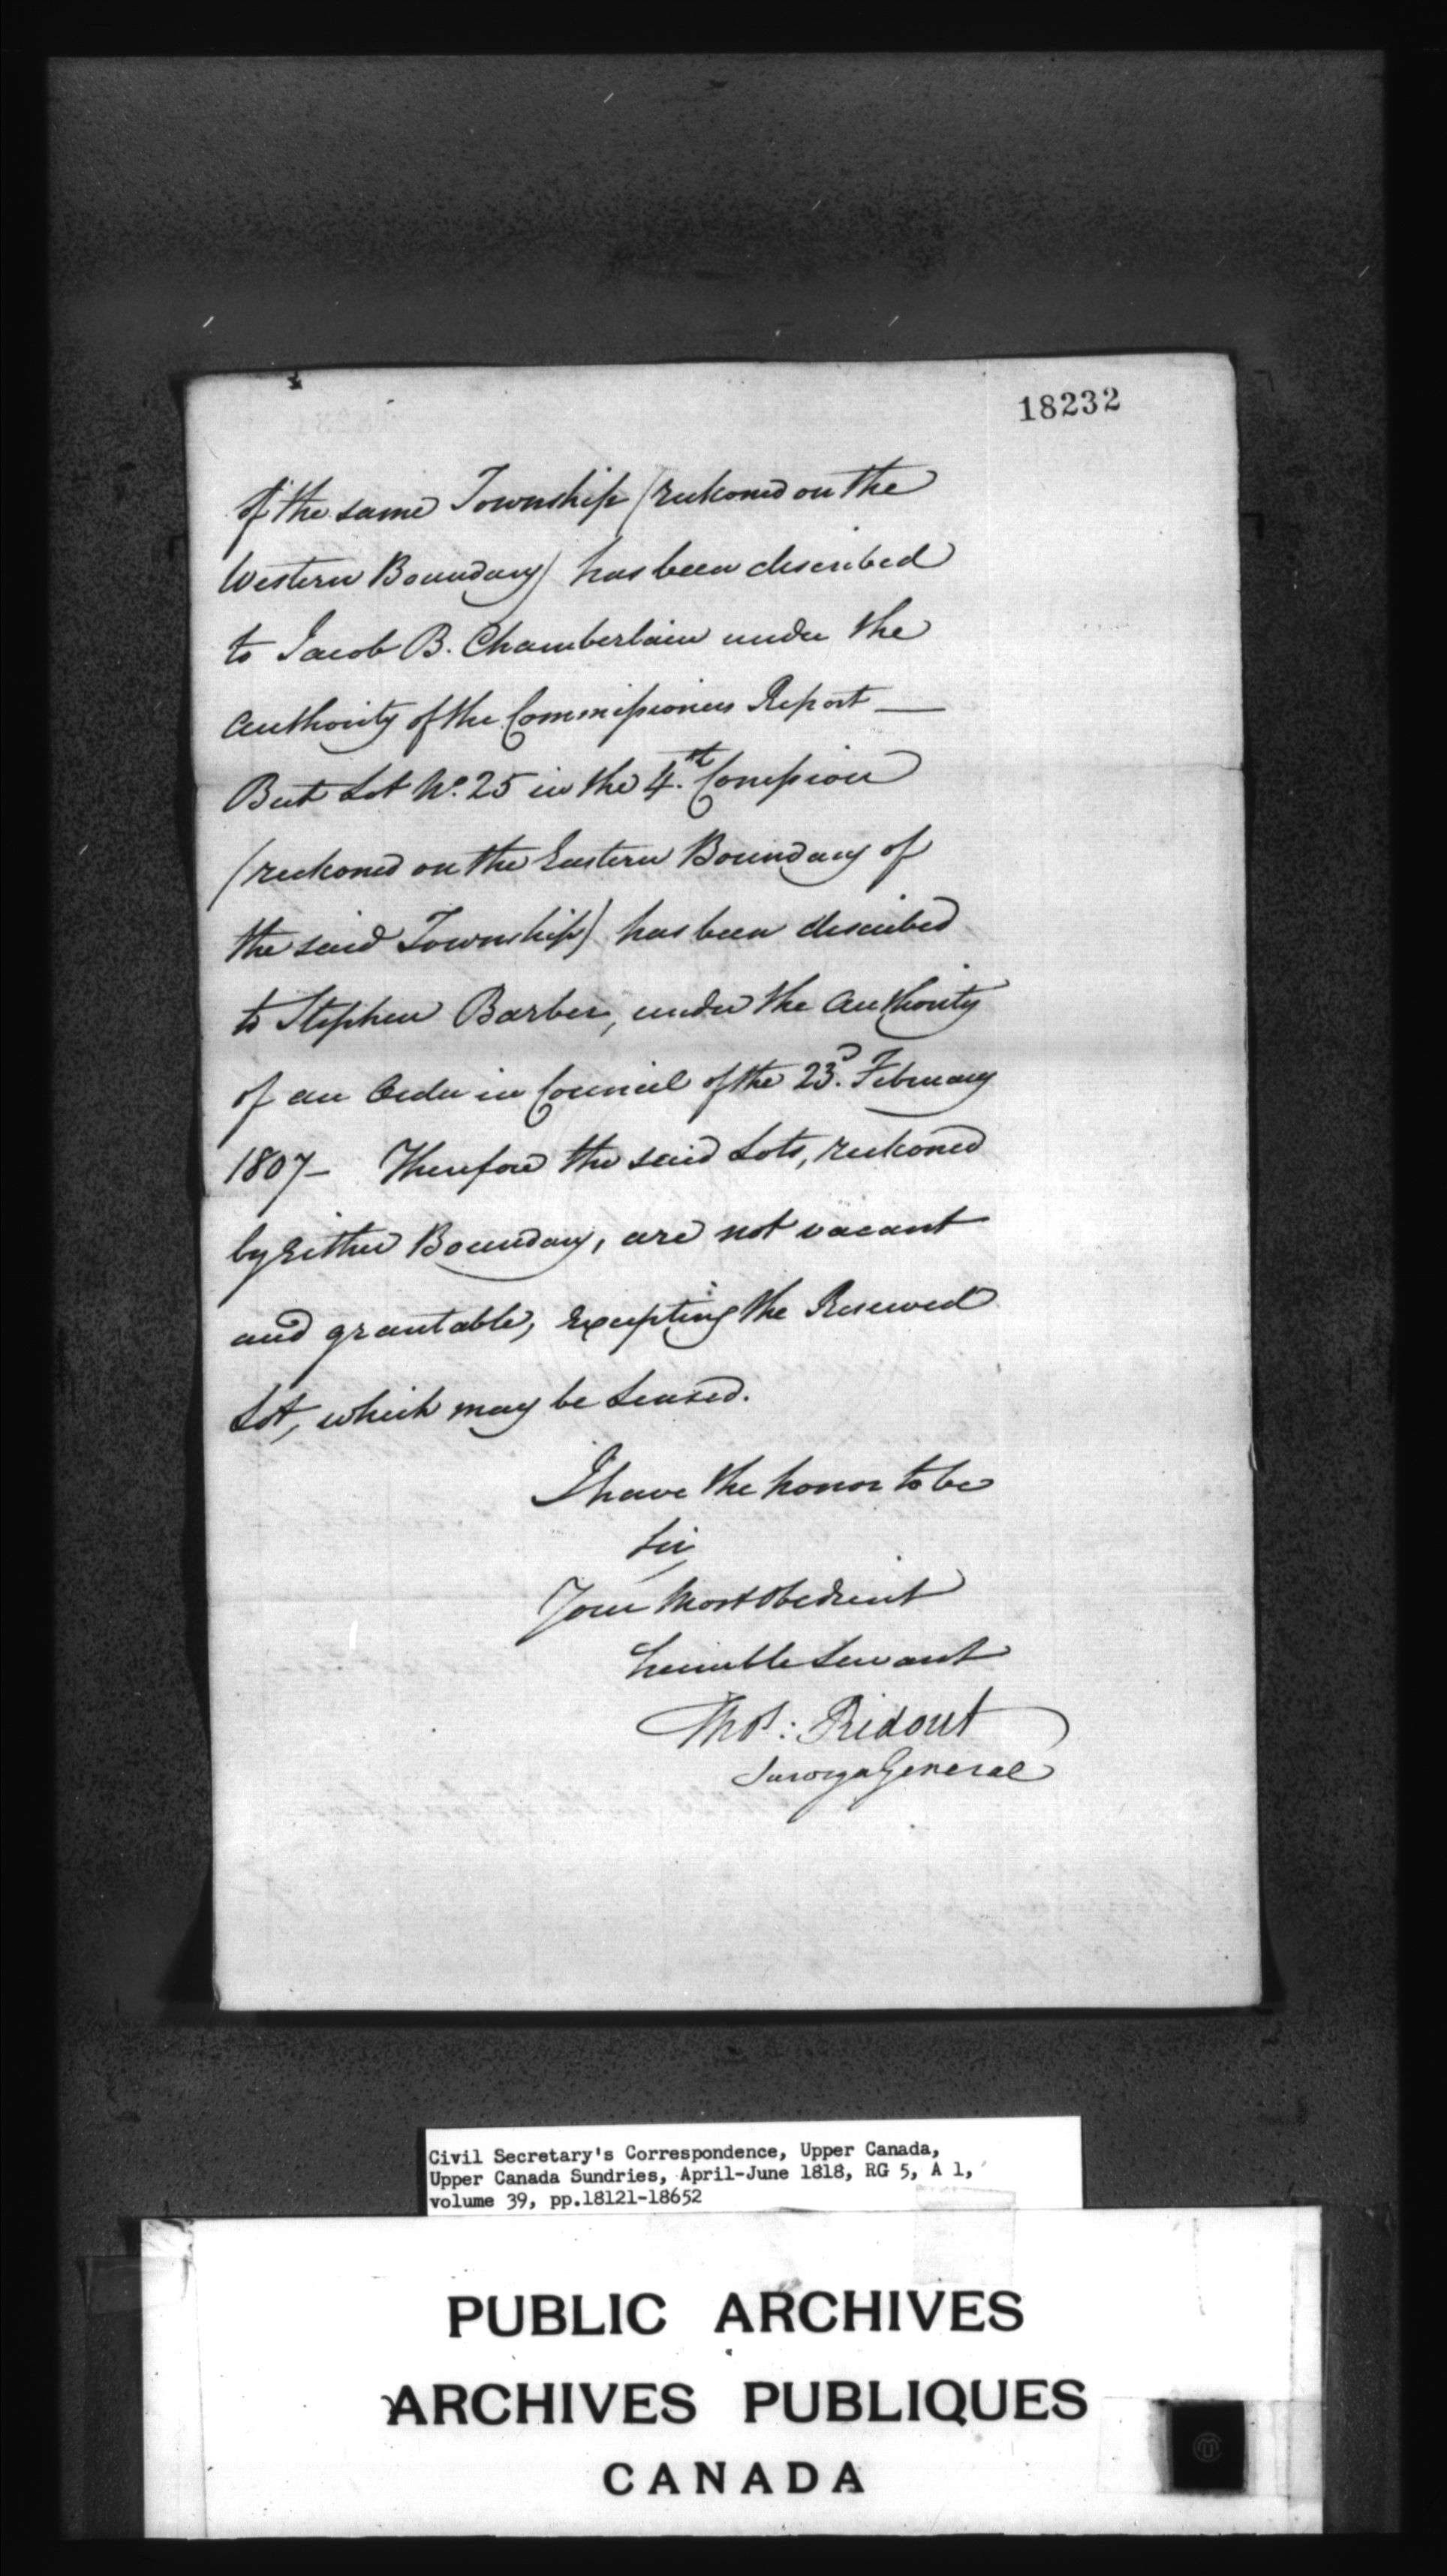 18232
of the same Township (reckoned on the
Western Boundary) has been described
to Jacob B. Chamberlain under the
authority of the Commissioners Report —
But Lot No. 25 in the 4.th Concession
(reckoned on the Eastern Boundary of
the said Township) has been described
to Stephen Barber, under the authority
of an Order in Council of the 23.d February
1807 — Therefore the said Lots, reckoned
by Either Boundary, are not vacant
and grantable, Excepting the Reserved
Lot, which may be Leased.
I have the honor to be
Sir,
Your Most Obedient
humble Servant
Thos: Ridout
Survey General
Civil Secretary's Correspondence, Upper Canada,
Upper Canada Sundries, April-June 1818, RG 5, A 1,
volume 39, pp.18121-18652
PUBLIC ARCHIVES
ARCHIVES PUBLIQUES
CANADA